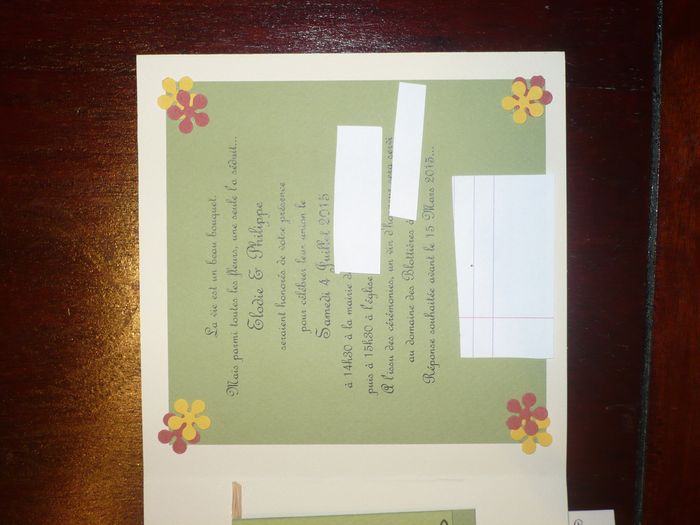 La vie est un beau bouquet.
Mais parmi toutes les fleurs, une seule l'a séduit...
Elodie & Philippe
seraient honorés de votre présence
pour célébrer leur union le
Samedi 4 Juillet 2015
à 14h30 à la mairie
puis à 15h30 à l'église
A l'issu des cérémonies, un vin sera servi
au domaine des Blottières
Réponse souhaitée avant le 15 Mars 2015...